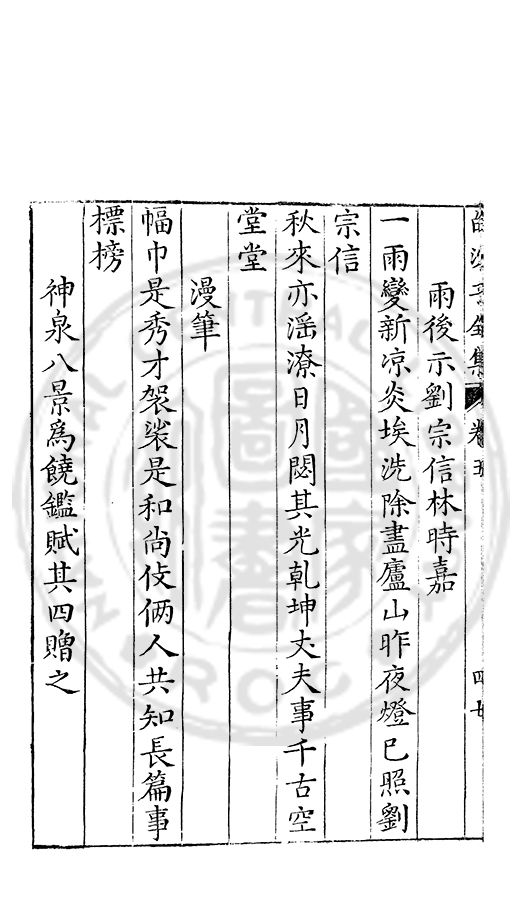 全集卷五
雨後示劉宗信林時嘉
一雨變新凉炎埃洗除盡廬山昨夜燈已照劉
宗信
秋來亦滛潦日月閟其光乾坤丈夫事千古空
堂堂
漫筆
幅巾是秀才袈裟是和尚伎倆人共知長篇事
標榜
神泉八景爲饒鑑賦其四贈之